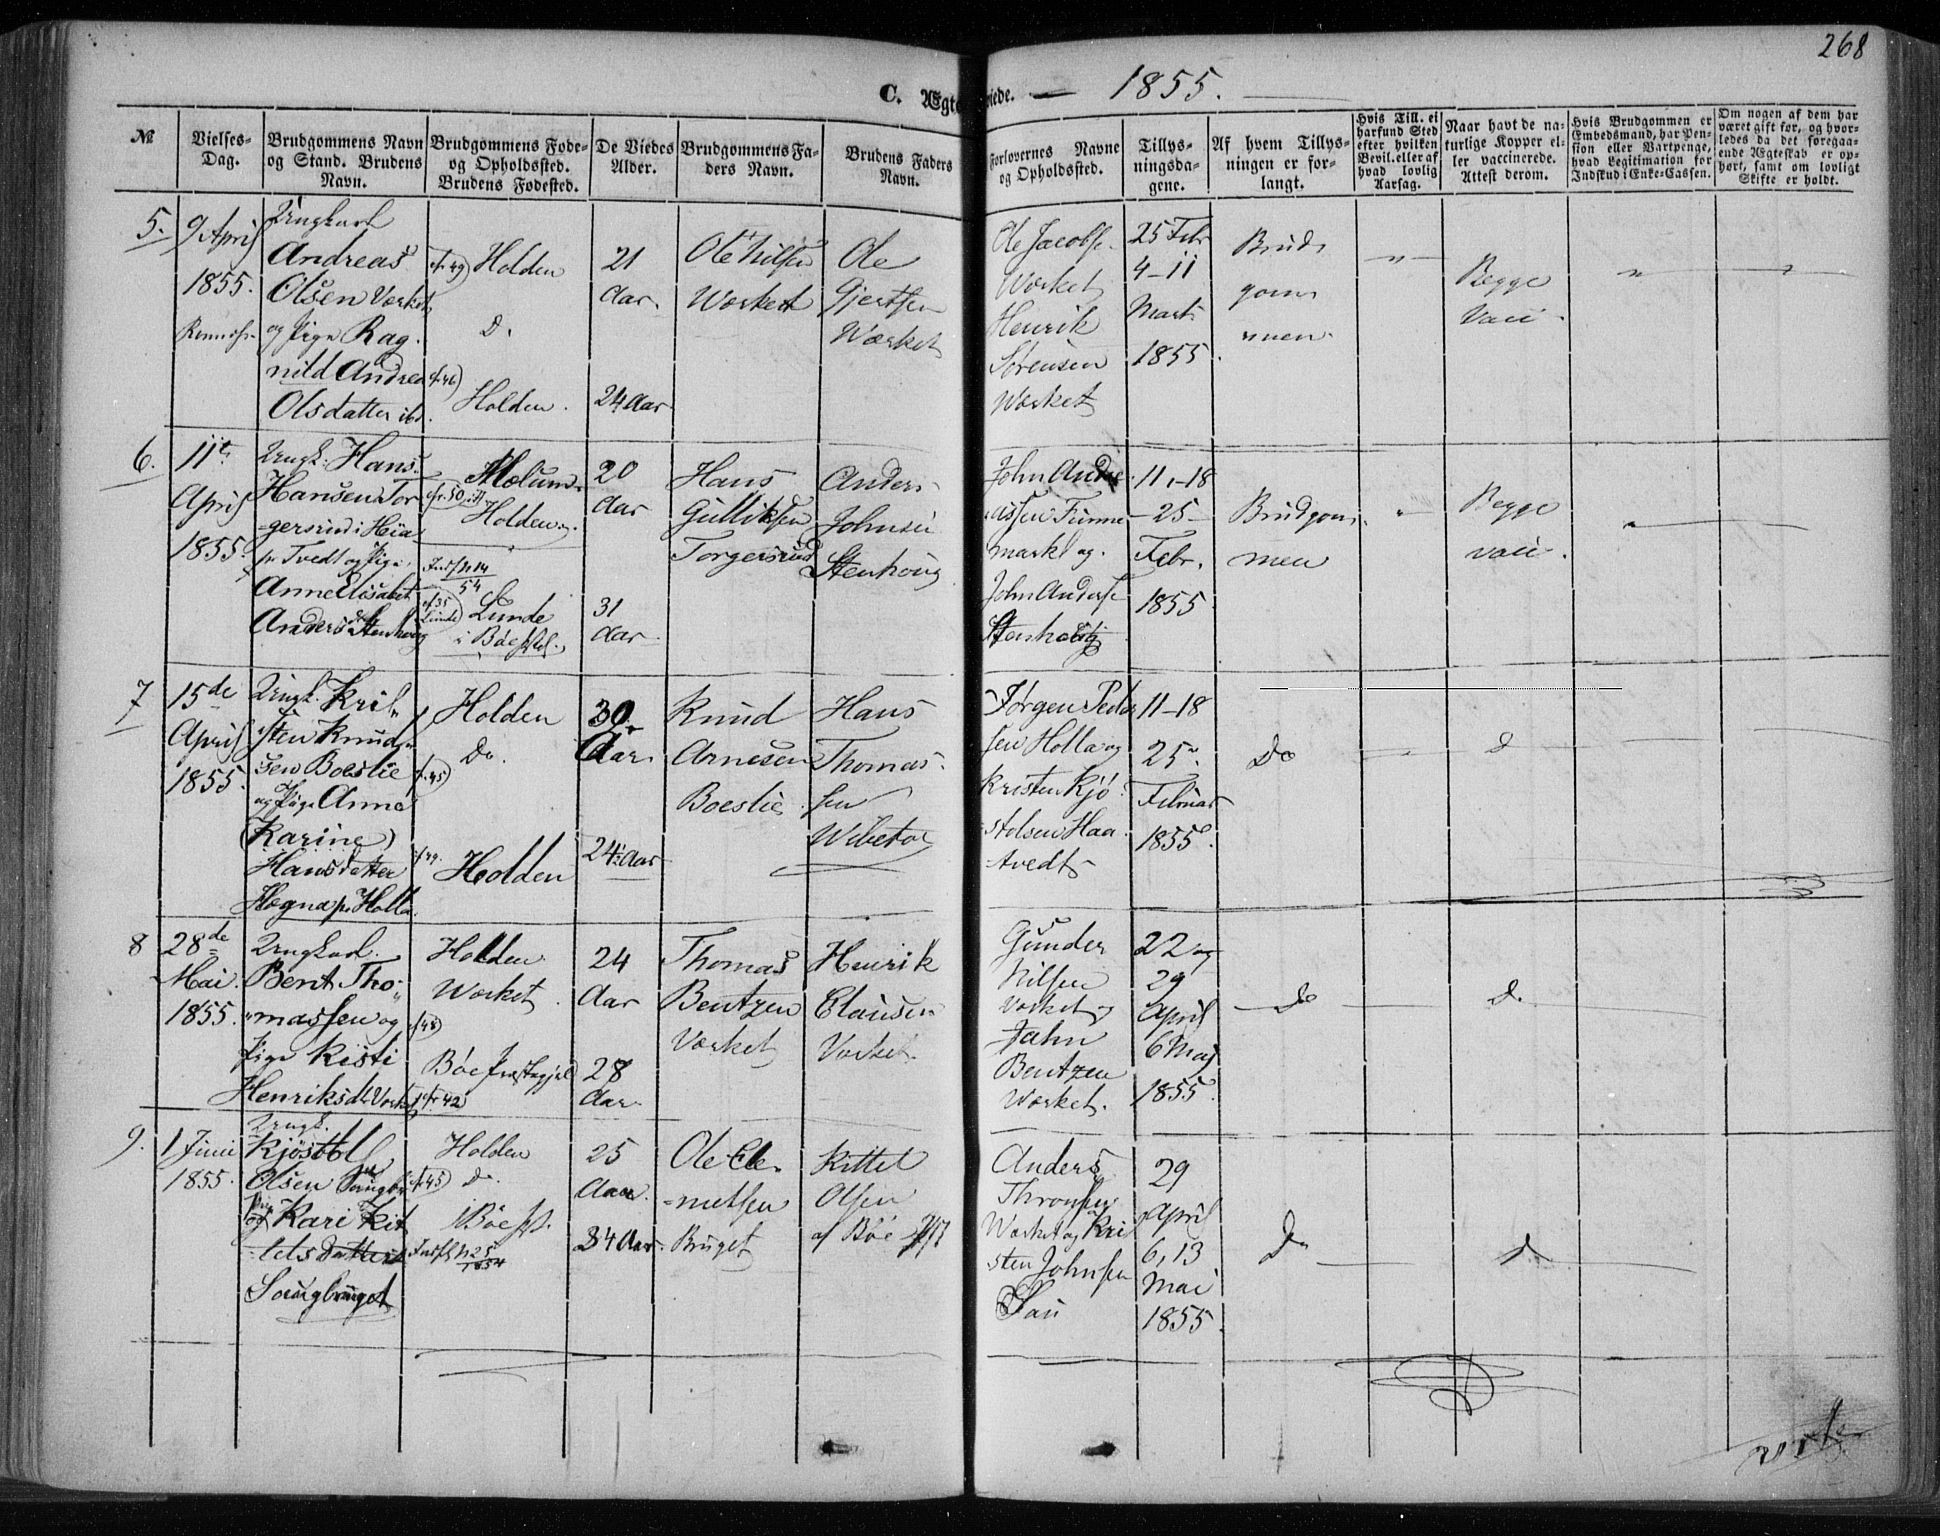 268
C. Ægte viede. — 1855.
№
Vielses-
Dag.
Brudgommens Navn
og Stand. Brudens
Navn.
Brudgommens Føde-
og Opholdssted.
Brudens Fødested.
De Viedes
Alder.
Brudgommens Fa-
ders Navn.
Brudens Faders
Navn.
Forlovernes Navne
og Opholdssted.
Tillys-
ningsda-
gene.
Af hvem Tillys-
ningen er for-
langt.
Hvis Till. ei
har fund Sted
efter hvilken
Bevil. eller af
hvad lovlig
Aarsag.
Naar havt de na-
turlige Kopper el-
ler vaccinerede.
Attest derom.
Hvis Brudgommen er
Embedsmand, har Pen-
sion eller Vartpenge,
hvad Legitimation for
Indskud i Enke-Cassen.
Om nogen af dem har
været gift før, og hvor-
ledes da det foregaa-
ende Ægteskab er op-
hørt, samt om lovligt
Skifte er holdt.
5.
9 April
1855.
Ungkarl
Andreas
Olsen Værket
og Pige Rag-
nild Andrea
Olsdatter ibd.
cfr 49)
Holden
D.
cfr 46)
Holden.
21
Aar.
24 Aar
Ole Nilsen
Wærket
Ole
Gjertsen
Wærket
Ole Jacobs.
Wærket
Henrik
Sørensen
Wærket
25 Febr
4-11
Marts
1855.
Brud-
gom-
men.
"
Begge
Vacc.
"
"
6.
11te
April
1855.
Ungk. Hans
Hansen Tor-
gersrud i Hia-
p. Tvedt og Pige
Anne Elisabet
Anders dtr Stenhoug
Mælum.
cfr. 50
Holden
Indf N 14
54
cf 35
Lunde)
Lunde
i Bøe Pgl.
20
Aar
31
Aar
Hans
Gulliksen
Torgersrud
Anders
Johnsen
Stenhoug
John Andre-
assen Finne-
mark og
John Anders.
Stenhoug
11,-18
-25-
Febr.
1855
Brudgom-
men
"
Begge
vacc.
"
7
15de
April
1855.
Ungk. Kri-
sten Knud-
sen Boeslie
og Pige Anne
(Karine)
Hansdatter
Høgna p. Holla.
Holden
Do.
cfr. 45)
cf 49.
Holden
30
Aar
24 Aar
Knud
Arnesen
Boeslie
Hans
Thomas-
sen
Wibetoe
Jørgen Peder
sen Holla og
Kristen Kjø-
stolsen Haa-
tvedt
11-18
25
Februar
1855.
Do
D
8
28de
Mai
1855.
Ungkarl
Bent Tho-
massen og
Pige Kisti
Henriksdtr Værket
Holden
Wærket
cf 48)
Bøe Præstegjæl
cfr 42
24
Aar
28
Aar.
Thomas
Bentzen
Værket
Henrik
Clausen
Værket.
Gunder
Nilsen
Værket og
Jahn
Bentzen
Wærket.
22 og
29
April
6 Maj
1855.
Do
D.
9.
1 Juni
1855.
Ungk.
Kjøstol
Olsen
og Pige Kari Kit-
telsdatter
Saugbruget
Holden
cfr 45)
D.
i Bøe Pgl.
Indfl N 25
1854
25
Aar.
34 Aar.
Ole Cle-
metsen
Bruget
Kittel
Olsen
af Bøe Pgl
Anders
Thronsen
Wærket og Kri-
sten Johnsen
Sau
29
April
6, 13
Mai
1855.
Do
D